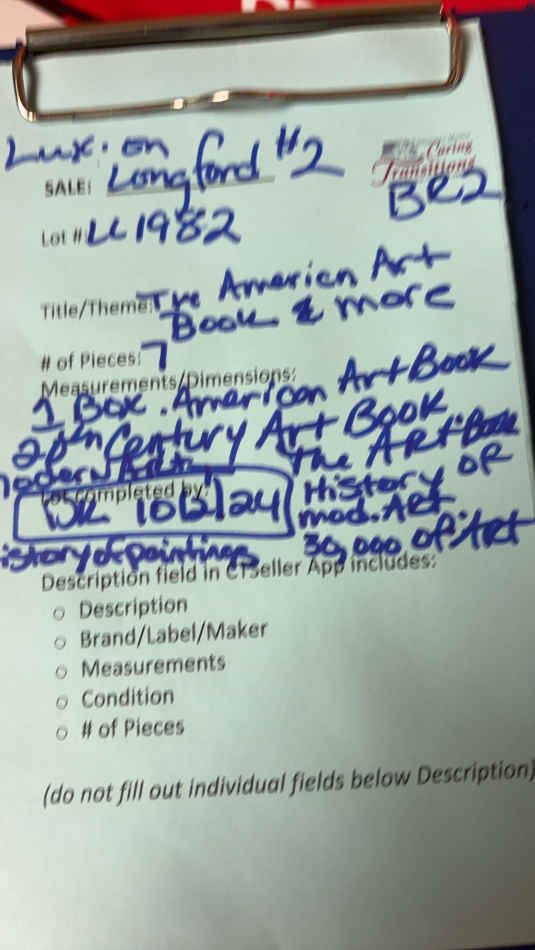 Lux. on
SALE: Longford #2
Caring
Transitions
BR2
Lot #: LL1982
Title/Theme: The Americn Art
Book & more
# of Pieces: 7
Measurements/Dimensions:
1 Box. American Art Book
20th Century Art Book
modern Art The ART Book
Lot completed by: History of
BR 10/2/24 mod. Art
istory of paintings 30,000 of Art
Description field in CTSeller App includes:
o Description
o Brand/Label/Maker
o Measurements
o Condition
o # of Pieces
(do not fill out individual fields below Description)